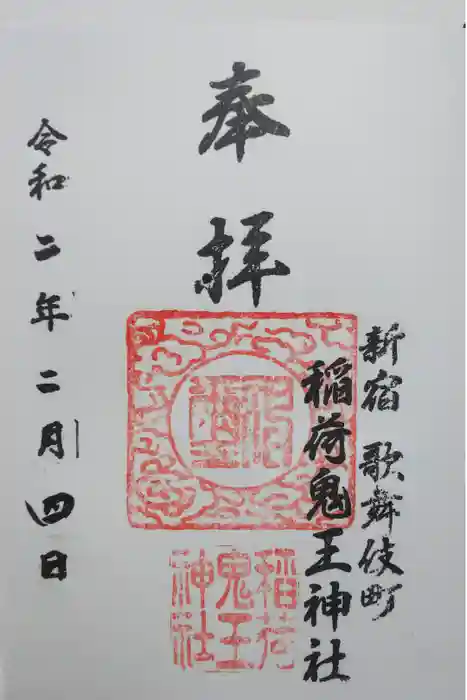 新宿 歌舞伎町
稲荷鬼王神社
奉拝
稲荷
鬼王
神社
令和二年二月四日